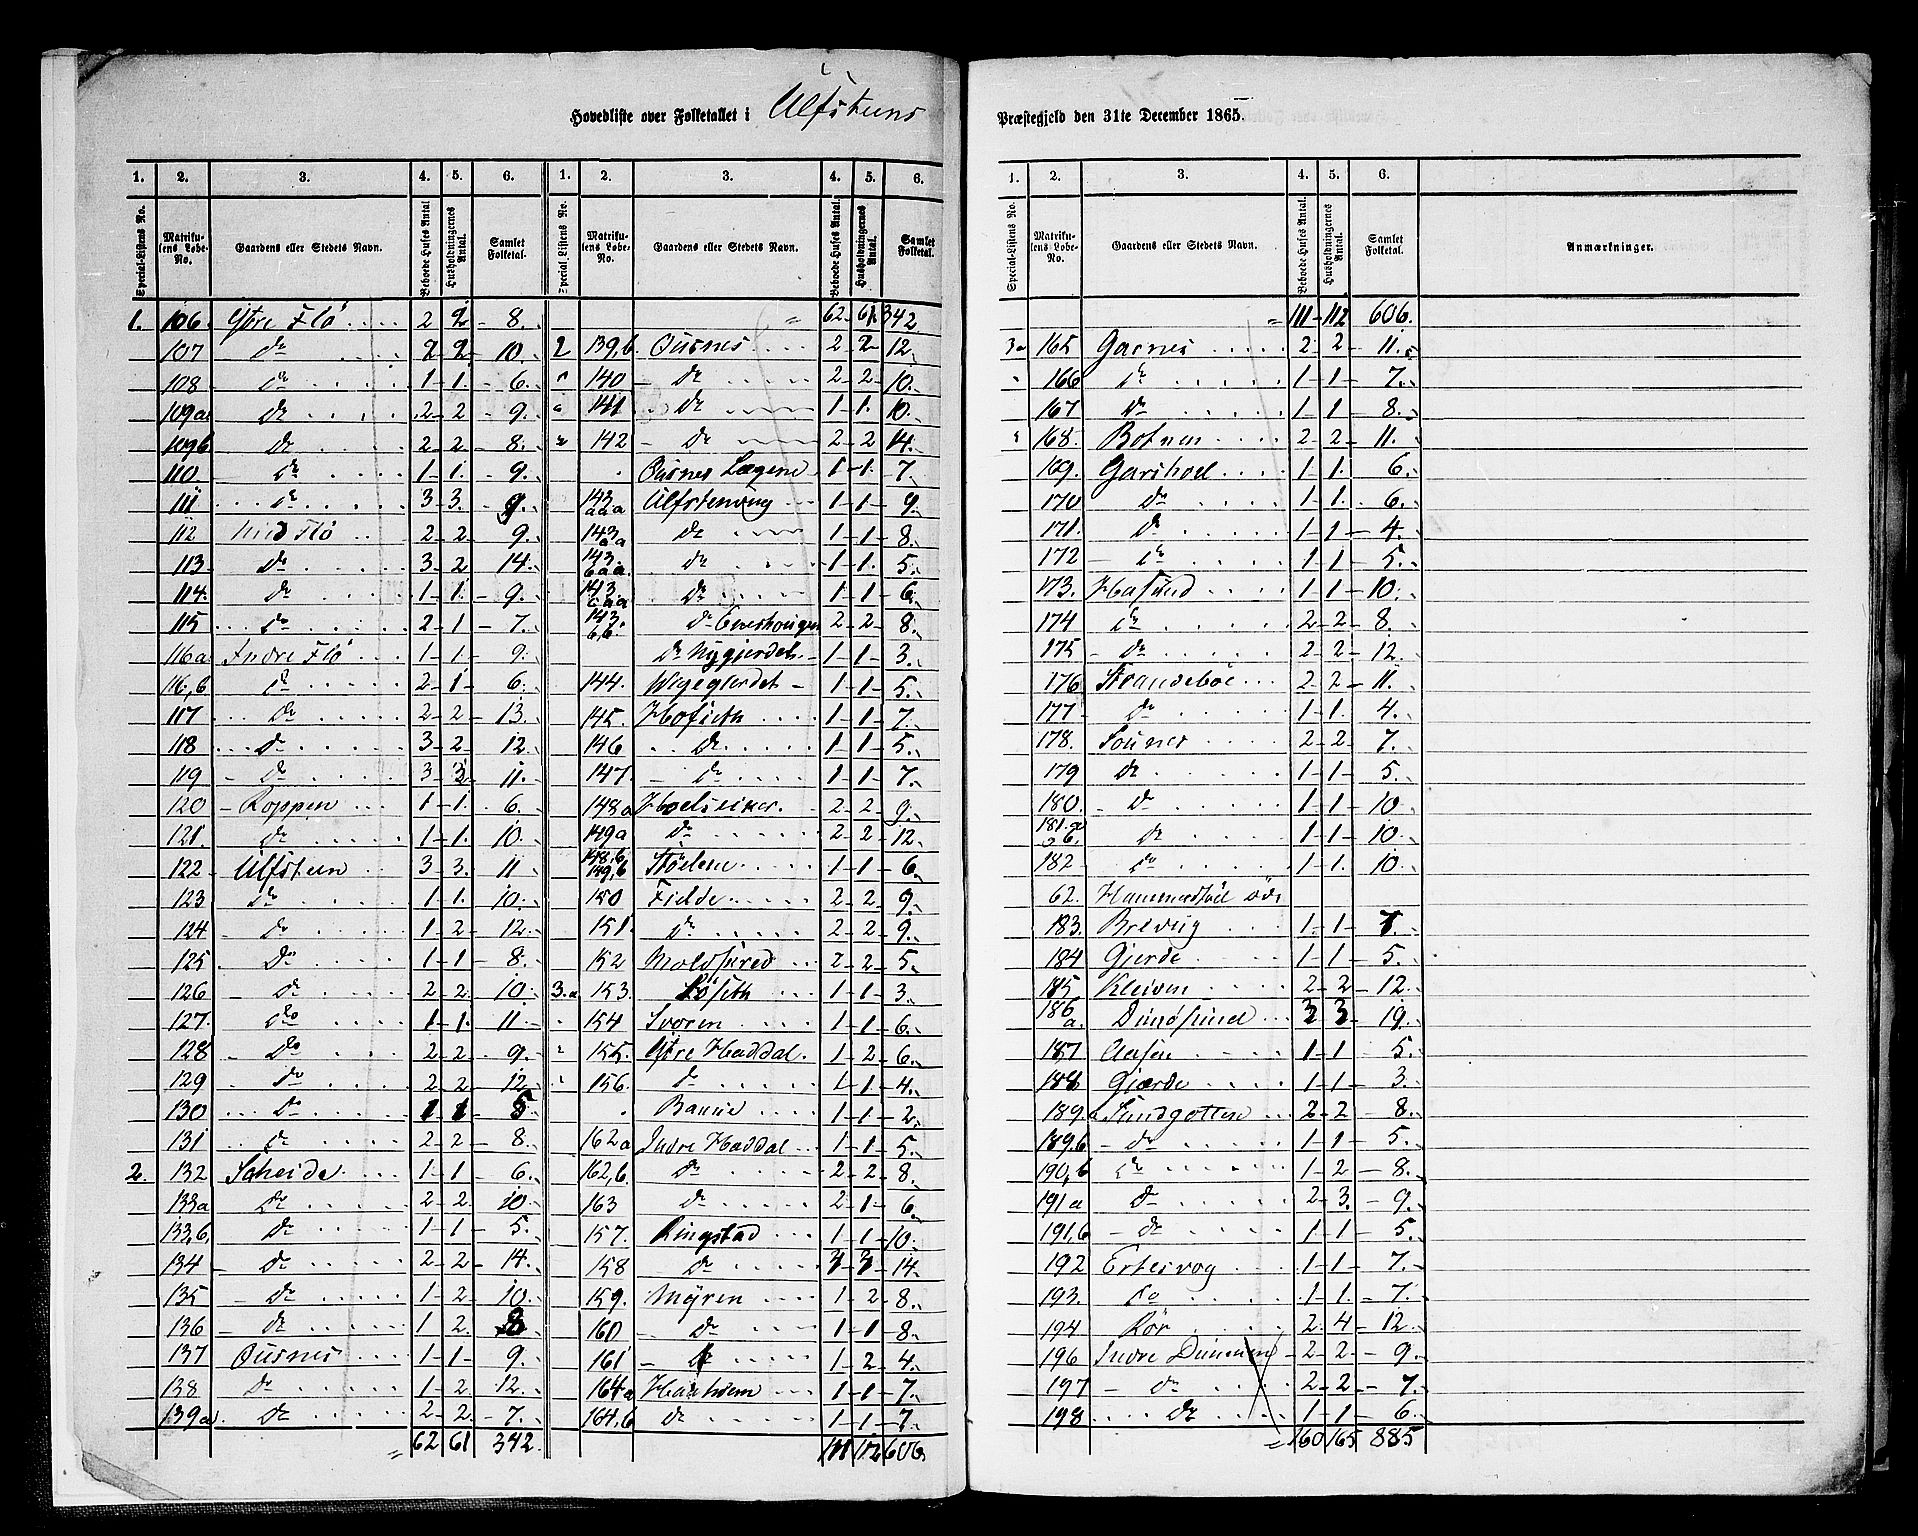 Hovedliste over Folketallet i Ulfsteens
Præstegjeld den 31te December 1865.
1. 2. 3. 4. 5. 6. 1. 2. 3. 4. 5. 6.
Special-Listens No. Matrikulens Løbe-No. Gaardens eller Stedets Navn. Beboede Huses Antal Husholdningernes Antal. Samlet Folketal. Special-Listens No. Matrikulens Løbe-No. Gaardens eller Stedets Navn. Beboede Huses Antal. Husholdningernes Antal. Samlet Folketal.
1. 106. Ytre Flö 2 2 8.
107 do 2 2 10.
108 do 1 1. 6.
109a do 2 2 9.
109b do 2 2 8.
110. do 1 1. 9.
111 do 3 3. 9.
112 Mid Flö 2 2 9.
113. do 3 2 14.
114. do 1 1. 9.
115 do 2 1 7.
116a Indre Flö 1 1 9.
116,b do 2 1 6.
117 do 2 2 13.
118 do 3 2 12.
119 do 3 3 11.
120 Roppen 1 1. 6.
121. do 1 1. 10.
122 Ulfsteen 3 3. 11
123 do 1 1. 10.
124 do 1 2 12.
125 do 1 1 8.
126 do 2 2 10.
127. do 1 1. 11.
128 do 2 2 9.
129 do 2 2 12
130 do 1 1 5
131 do 2 2 8.
2. 132 Scheide 1 1 6.
133a do 2 2 10.
133,b, do 1 1 5.
134 do 2 2 14.
135 do 1 2 10.
136 do 1 2 8
137 Ousnes 1 1 9.
138 do 1 2 12.
139a do 2 2 7.
= 62 61 342.
= 62 61 342
2 139,b Ousnes 2 2 12.
140 do 2 2 10.
141 do 1 1. 10.
142 do 2 2 14.
Ousnes Lægene 1 1. 7.
143 aaa Ulfstenvog 1 1 9.
143 aa do 1 1 8.
143 baa do 1 1. 5.
143 caa do 1 1 6.
143. b,b. do 2 2 8.
do Nygjerdet 1 1 3.
144. Wigegjerdet 1 1 5.
145. Hofseth 1 1 7.
146 do 1 1 5.
147. do 1 1 7.
148a Hoelseiker. 2 2 9.
149a do 2 2 12.
148,b 149,b Stöelene 1 1 6.
150 Fielde 2 2 9.
151 do 2 2 9.
152 Moldskred 2 2 5.
3. 153. Löseth 1 1 3.
154 Svoren 1 1 6.
155. Ytre Haddal. 1 2 6.
156. do 1 1 4.
Baune 1 1. 2.
162a Indre Haddal 1 1 5.
162,b. do 2 2 8.
163 do 2 1 6.
157. Ringstad 1 1 10.
158 do 3 3 14.
159. Myren 1 2 8.
160 do 1 1 8.
161 do 1 2 4.
164a Hasholm 1 1 7.
164,b do 1 1 7.
111 112 606
1. 2. 3. 4. 5. 6.
Special-Listens No. Matrikulens Løbe-No. Gaardens eller Stedets Navn. Beboede Huses Antal. Husholdningernes Antal. Samlet Folketal. Anmærkninger.
= 111 112 606.
3 165 Garnes 2 2 11.
166 do 1 1 7.
167 do 1 1 8.
168. Botnen 2 2 11.
169. Garshoel 1 1. 6.
170 do 1 1. 6.
171. do 1 1 4.
172 do 1 1 5.
173. Hasund 1 1 10.
174 do 2 2 8.
175 do 2 2 12.
176 Strandeböe 2 2 11.
177 do 1 1. 4.
178. Sounes 2 2 7.
179 do 1 1 5.
180. do 1 1 10
181.a do 1 1 10
182 do 1 1. 10
62. öde
183. Brevig 1. 1 7.
184 Gjerde 1 1 5.
185 Kleiven 2 2 12.
186 a. Dimösund 3 3 19.
187 Aasen 1 1 5.
188 Gjærde 1 1 3.
189.a Sundgotten 2 2 8.
189,b do 1 1 5.
190,b do 1 2 8.
191a do 2 3. 9.
191,b do 1 1 5.
192 Ertesvog 1 1 7.
193. do 1 1. 7.
194 Rör 2 4 12.
196 Indre Dimmen 2 2 9.
197 do 2 2 7.
198 do 1 1 6.
= 160 165 885